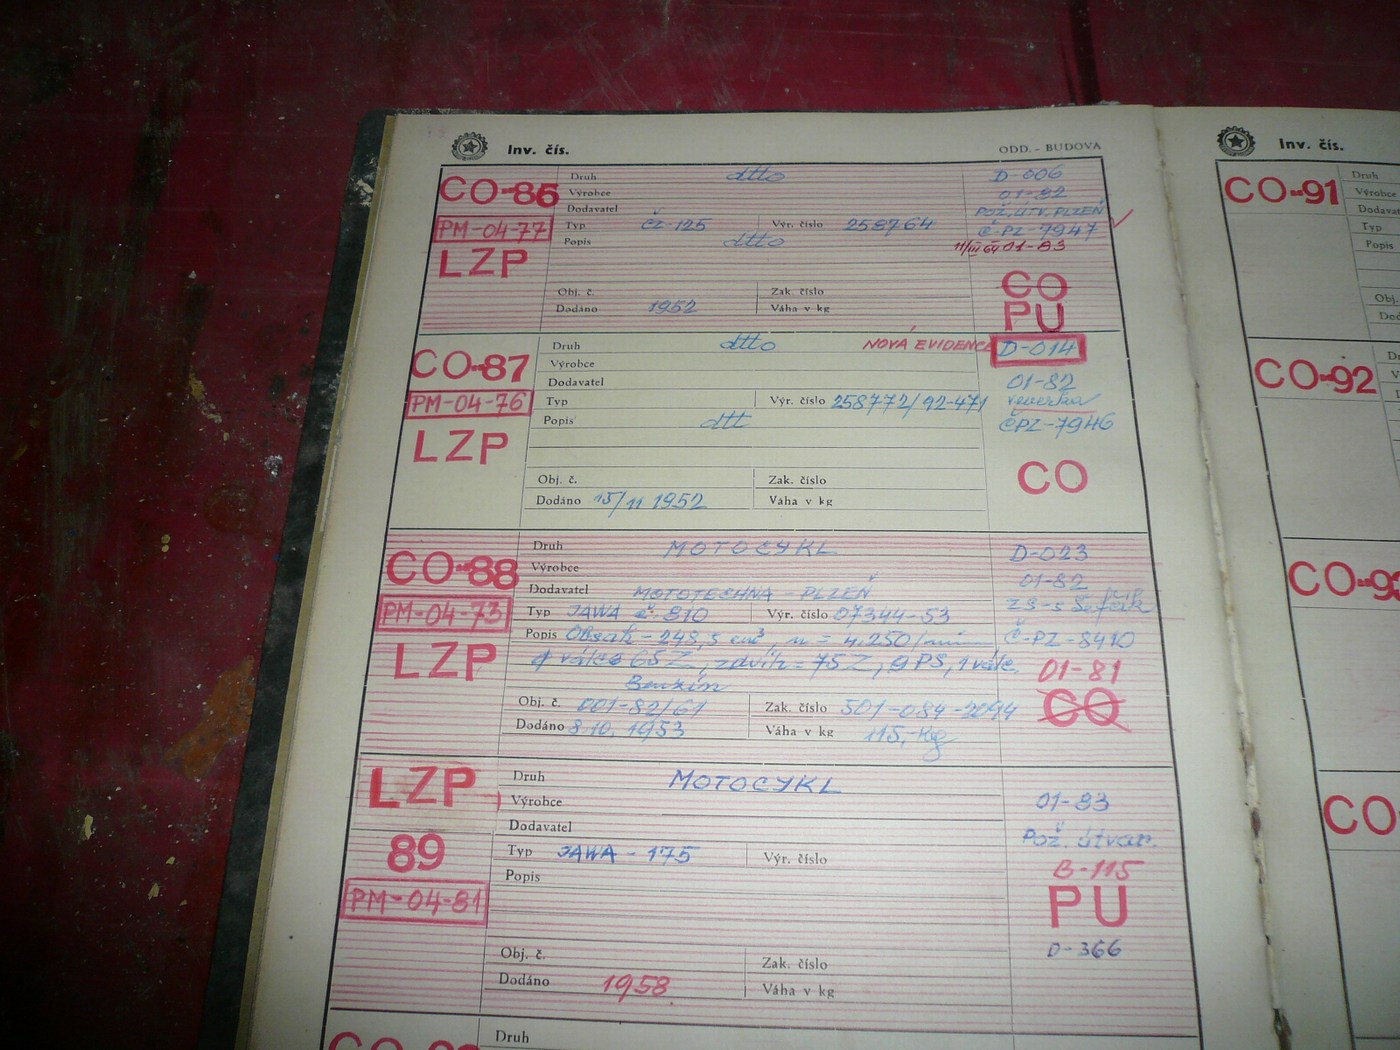 Inv. čís. ODD. - BUDOVA
CO-86
PM-04-77
LZP
Druh dtto D-006
Výrobce 01-82
Dodavatel POŽ. ÚTV. PLZEŇ
Typ ČZ-125 Výr. číslo 258764 Č-PZ-7947
Popis dtto 01-83
CO
PU
Obj. č. Zak. číslo
Dodáno 1952 Váha v kg
CO-87
PM-04-76
LZP
Druh dtto NOVÁ EVIDENCE D-014
Výrobce
Dodavatel 01-82
Typ Výr. číslo 258772/92-471
Popis dtt ČPZ-7946
CO
Obj. č. Zak. číslo
Dodáno 15/11 1952 Váha v kg
CO-88
PM-04-73
LZP
Druh MOTOCYKL D-023
Výrobce 01-82
Dodavatel MOTOTECHNA - PLZEŇ
Typ JAWA č. 810 Výr. číslo 07344-53
Popis Obsah - 248,5 cm³, n = 4.250/min Č-PZ-8410
válce 65 Z, zdvih = 75 Z, 9 PS, 1 válc. 01-81
Benzin CO
Obj. č. 001-82/61 Zak. číslo 501-084-2094
Dodáno 8.10. 1953 Váha v kg 115,- kg
LZP
89
PM-04-81
Druh MOTOCYKL
Výrobce 01-83
Dodavatel Pož. útvar.
Typ JAWA - 175 Výr. číslo B-115
Popis PU
D-366
Obj. č. Zak. číslo
Dodáno 1958 Váha v kg
Druh
Inv. čís.
CO-91
Druh
Výrobce
Typ
Popis
Obj.
CO-92
CO-93
CO